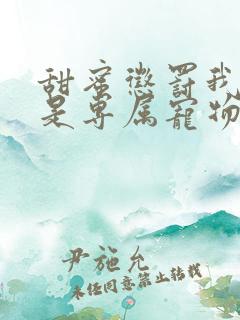 甜蜜惩罚我
是专属宠物
尹施允
未经同意禁止转载